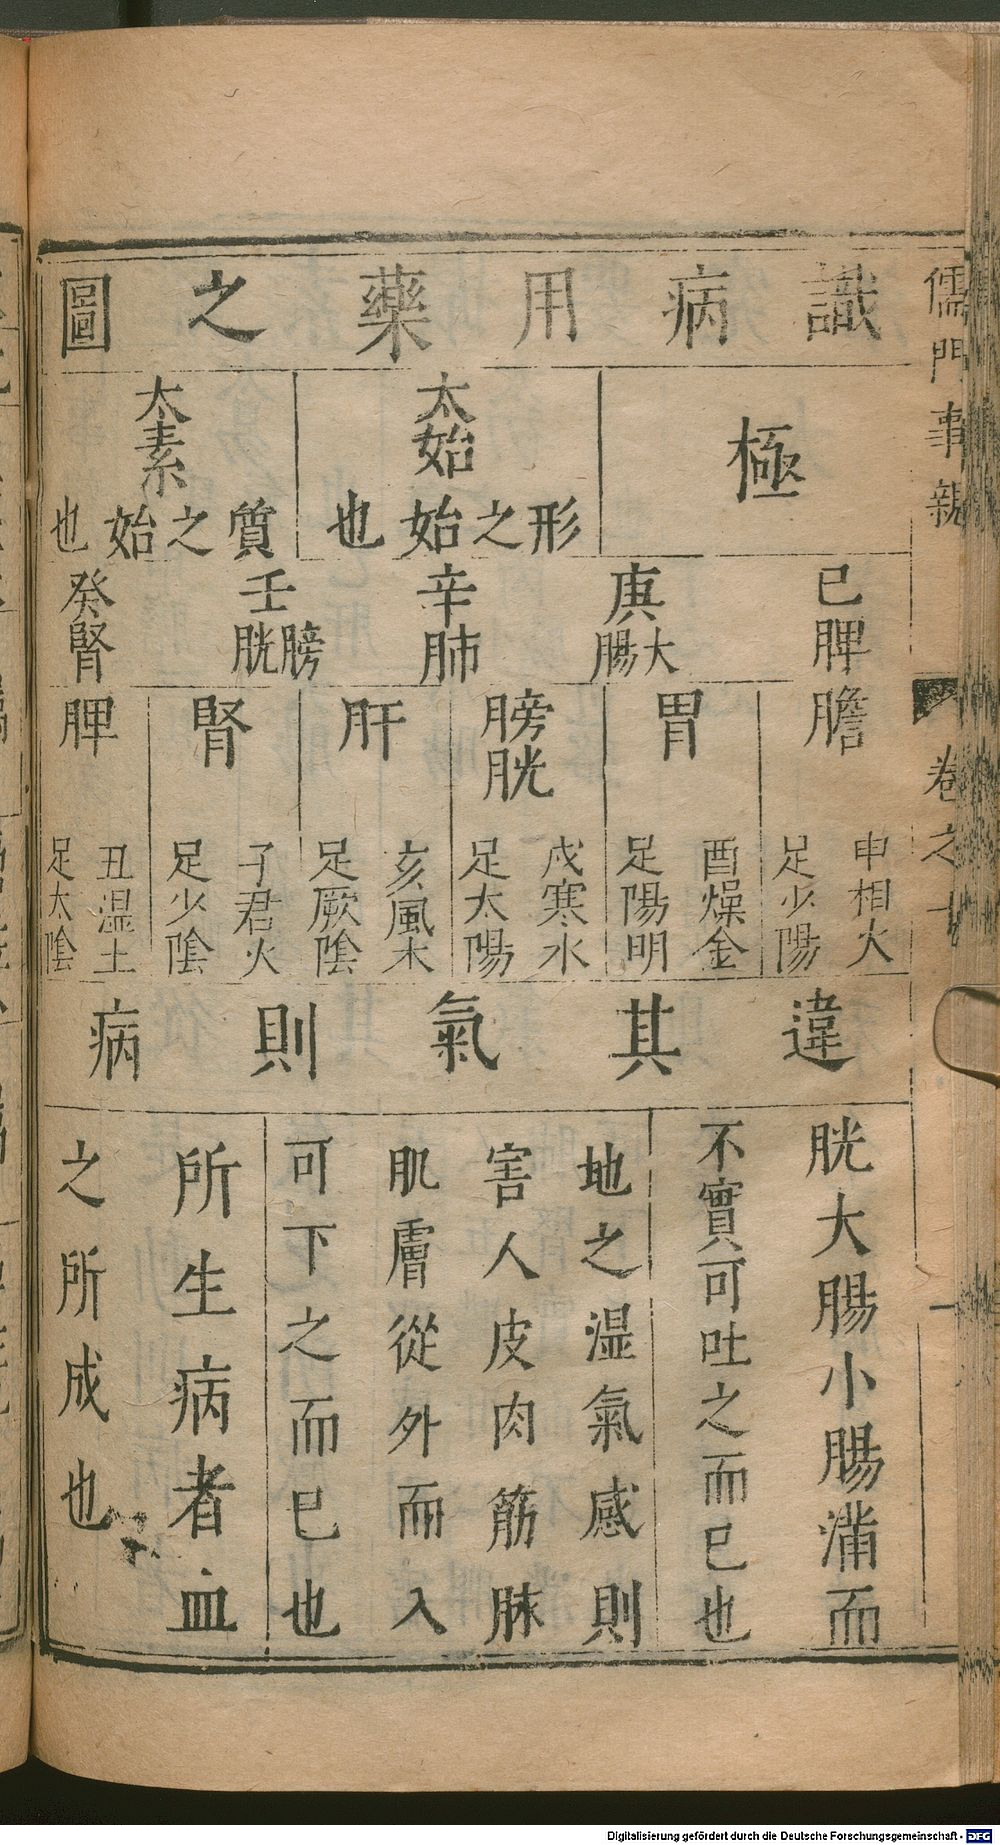 儒門事親
卷之十
一
識病用藥之圖
極
太始
形之始也
太素
質之始也
已脾
庚大腸
辛肺
壬膀胱
癸腎
膽
申相火
足少陽
胃
酉燥金
足陽明
膀胱
戌寒水
足太陽
肝
亥風木
足厥陰
腎
子君火
足少陰
脾
丑湿土
足太陰
違其氣則病
胱大腸小腸滿而
不實可吐之而已也
地之湿氣感則
害人皮肉筋脉
肌膚從外而入
可下之而已也
所生病者血
之所成也
Digitalisierung gefördert durch die Deutsche Forschungsgemeinschaft - DFG